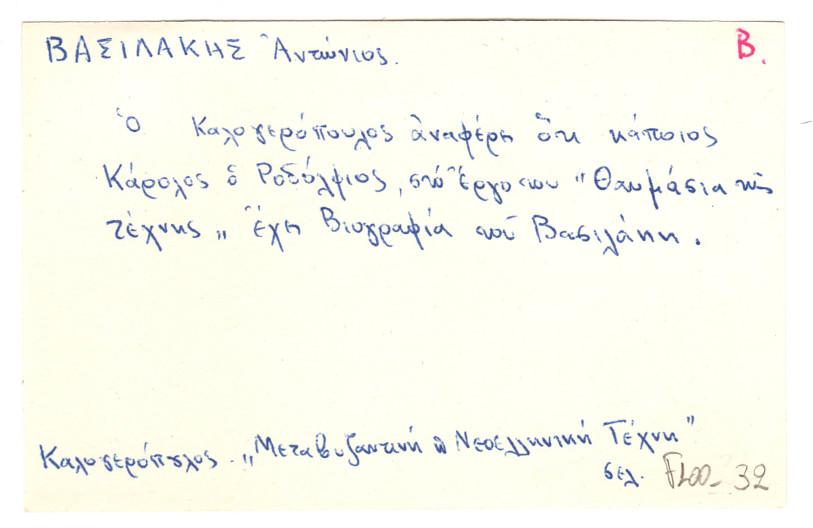 ΒΑΣΙΛΑΚΗΣ Ἀντώνιος.
Β.
Ὁ Καλογερόπουλος ἀναφέρει ὅτι κάποιος
Κάρολος ὁ Ροδόλφιος, στὸ ἔργο του "Θαυμάσια τῆς
τέχνης" ἔχει βιογραφία τοῦ Βασιλάκη.
Καλογερόπουλος. "Μεταβυζαντινή Νεοελληνική Τέχνη"
σελ. 32